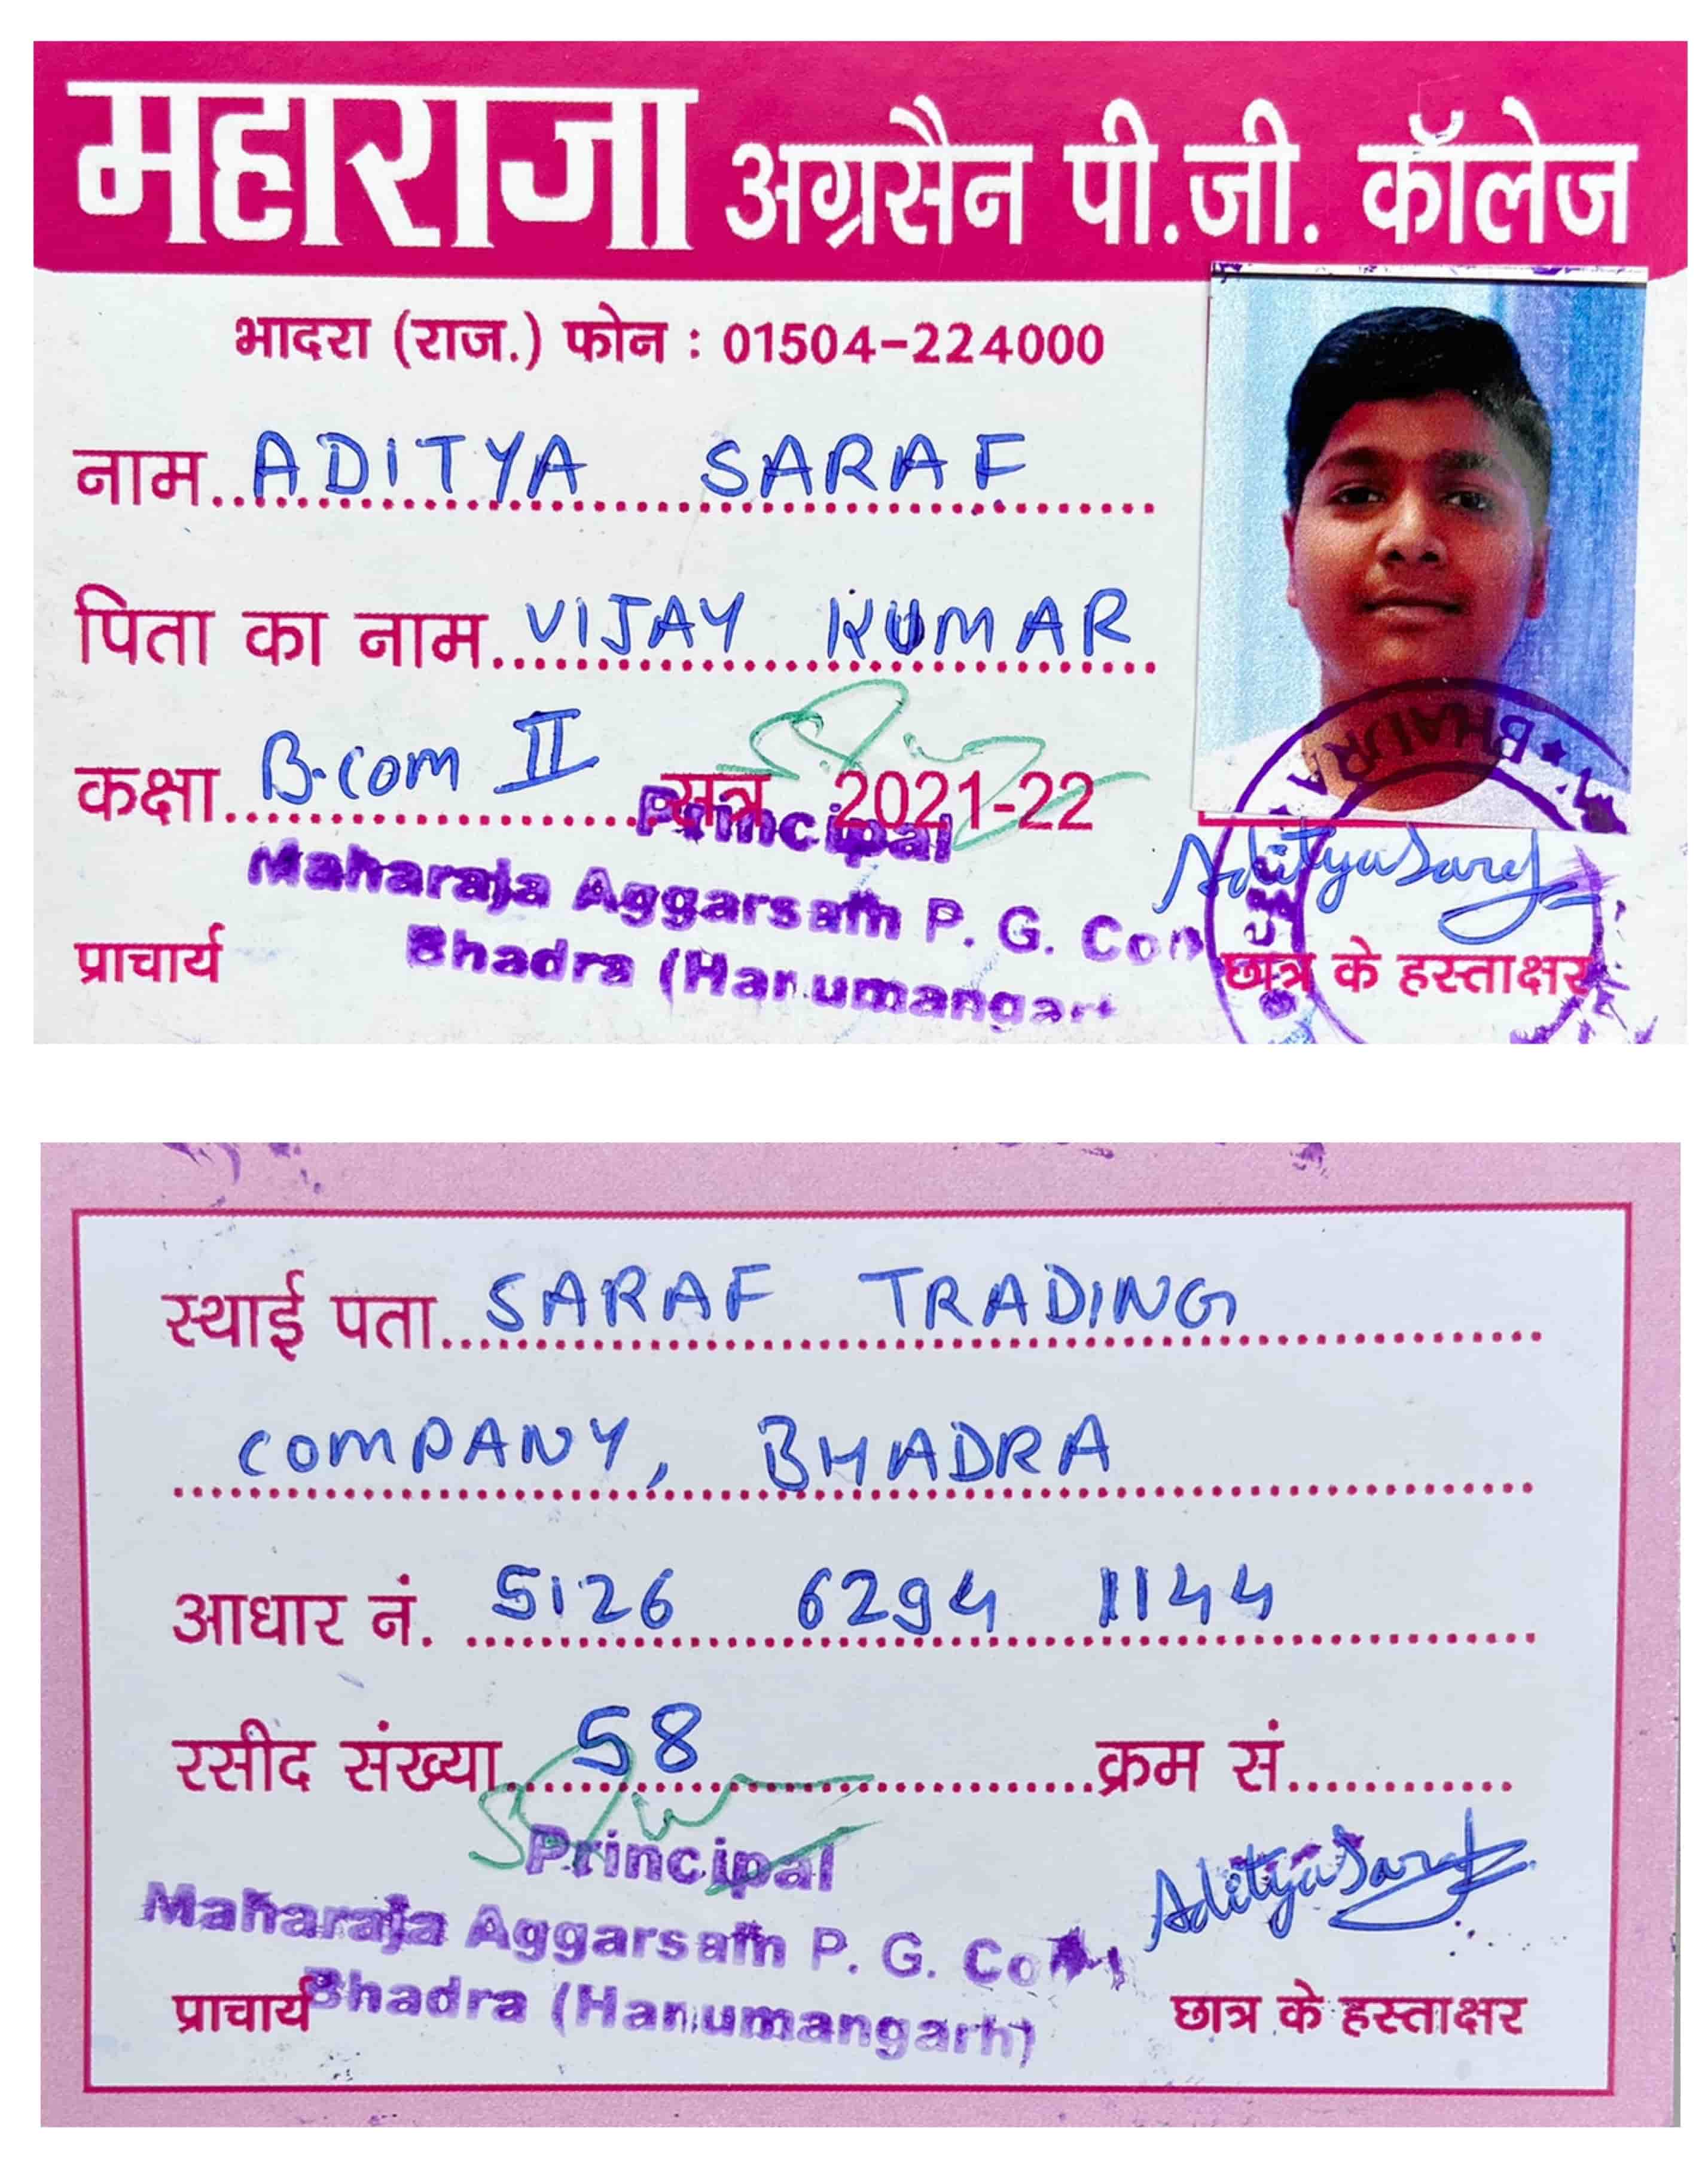 महाराजा अग्रसैन पी.जी. कॉलेज
भादरा (राज.) फोन : 01504-224000
नाम ADITYA SARAF
पिता का नाम VIJAY KUMAR
कक्षा B.com II सत्र 2021-22
Principal
Maharaja Aggarsain P. G.
Bhadra
BHADRA
Aditya Saraf
प्राचार्य
छात्र के हस्ताक्षर
स्थाई पता SARAF TRADING
COMPANY, BHADRA
आधार नं. 5126 6294 1144
रसीद संख्या 58 क्रम सं.
Principal
Maharaja Aggarsain P. G.
Bhadra (Hanumangarh)
Aditya Saraf
प्राचार्य
छात्र के हस्ताक्षर